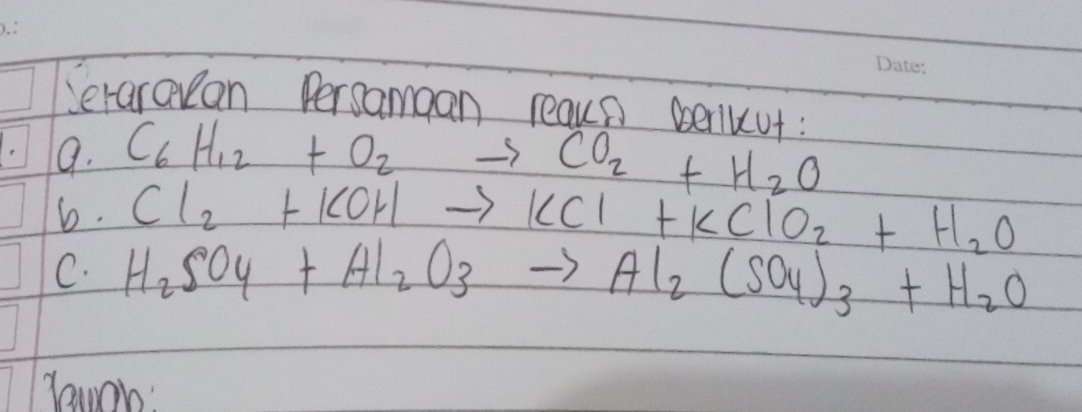 Date:
Setarakan Persamaan reaksi berikut:
1. a. C6 H12 + O2 -> CO2 + H2O
b. Cl2 + KOH -> KCl + KClO2 + H2O
c. H2SO4 + Al2O3 -> Al2 (SO4)3 + H2O
Jawab: